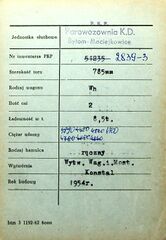 P.K.P.
Jednostka służbowa Parowozownia K.D.
Bytom-Maciejkowice
Nr inwentarza PKP 51235 2839-3
Szerokość toru 785mm
Rodzaj wagonu Wh
Ilość osi 2
Ładowność w t. 8,5t.
Ciężar własny
Rodzaj hamulca ręczny
Wytwórnia Wytw. Wag.i Most.
Konstal
Rok budowy 1954r.